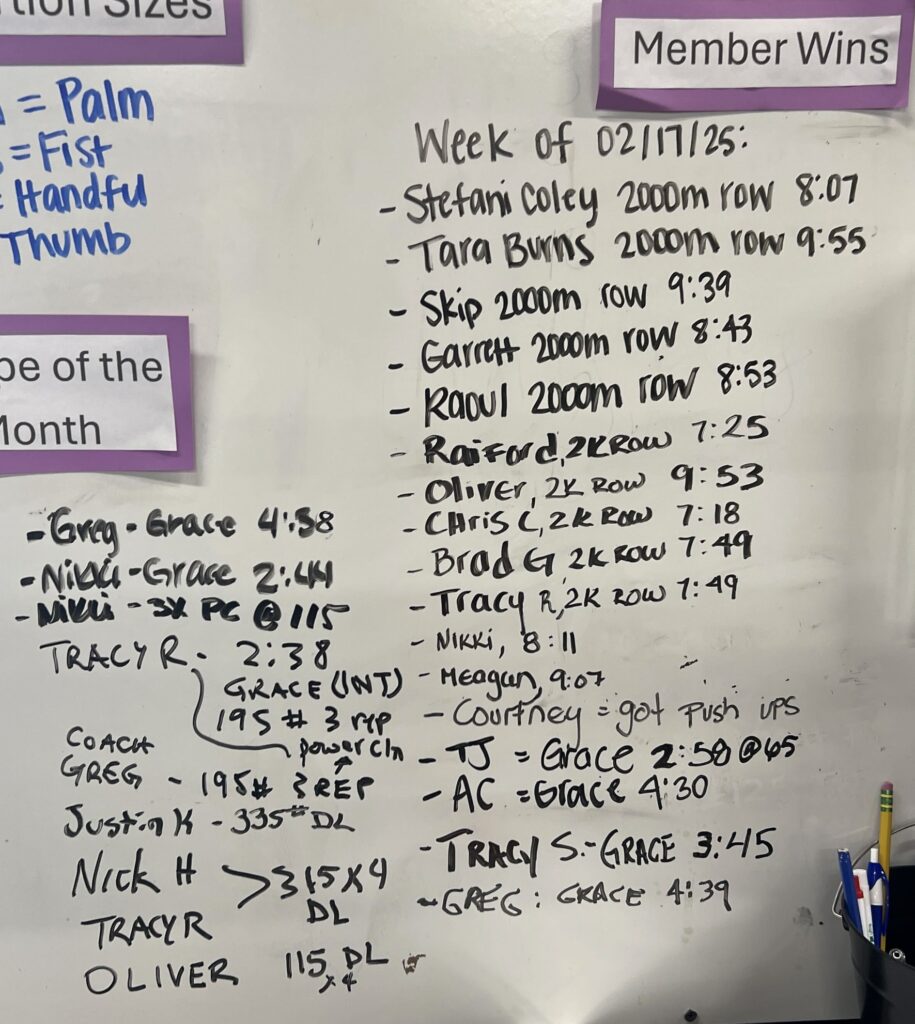 tion Sizes
= Palm
= Fist
= Handful
Thumb
pe of the
Month
- Greg - Grace 4:38
- Nikki - Grace 2:44
- Nikki - 3X PC @ 115
TRACY R - 2:38
GRACE (INT)
195 # 3 rep
power cln
COACH
GREG - 195# 3 REP
Justin K - 335# DL
Nick H > 315 x 4
DL
TRACY R
OLIVER 115 DL
x4
Member Wins
Week of 02/17/25:
- Stefani Coley 2000m row 8:07
- Tara Burns 2000m row 9:55
- Skip 2000m row 9:39
- Garrett 2000m row 8:43
- Raoul 2000m row 8:53
- Raiford, 2K Row 7:25
- Oliver, 2K Row 9:53
- Chris C, 2K Row 7:18
- Brad G 2K Row 7:49
- Tracy R, 2K Row 7:49
- Nikki, 8:11
- Meagan, 9:07
- Courtney = got push ups
- TJ = Grace 2:58 @ 65
- AC = Grace 4:30
- TRACY S. - GRACE 3:45
- GREG : GRACE 4:39